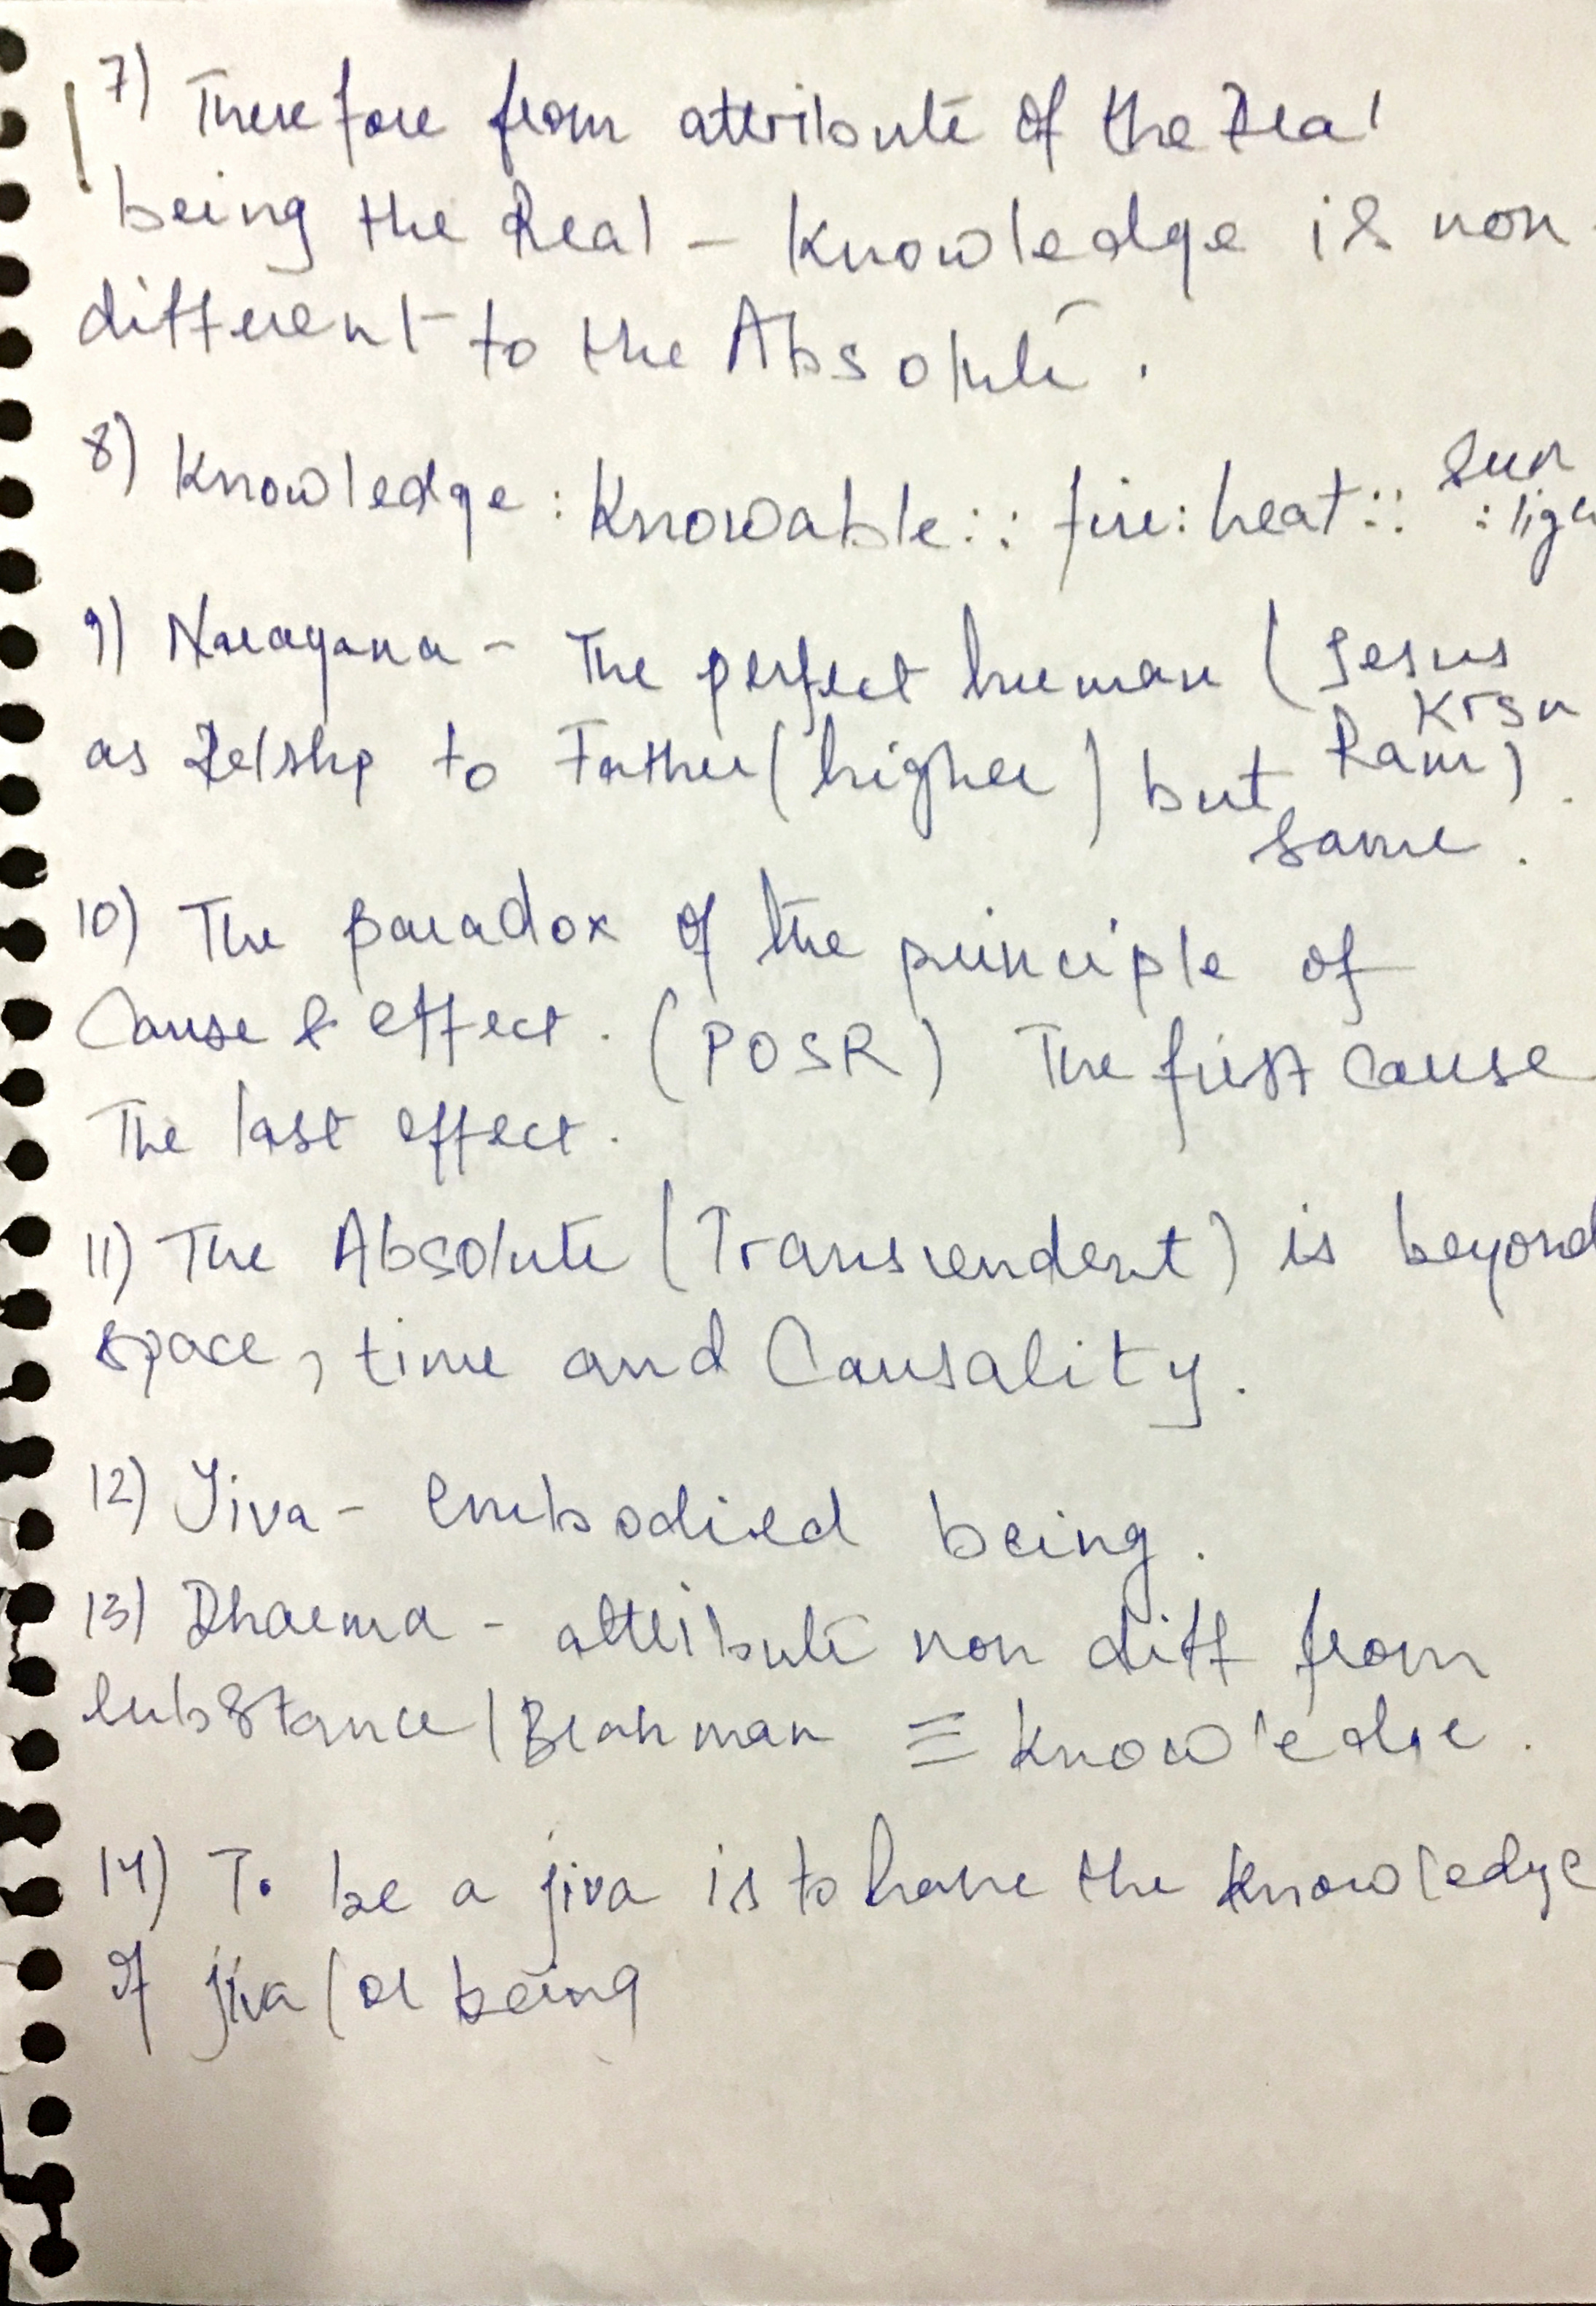 7) Therefore from attribute of the Real
being the Real – Knowledge is non-
different to the Absolute.
8) Knowledge : Knowable :: fire : heat :: Sun
: ligh
9) Narayana – The perfect human (Jesus
Krsn
as Relshp to Father (higher) but Ram)
same.
10) The paradox of the principle of
Cause & effect. (POSR) The first cause
The last effect.
11) The Absolute (Transcendent) is beyond
space, time and Causality.
12) Jiva – embodied being.
13) Dharma – attribute non diff from
substance / Brahman ≡ knowledge.
14) To be a jiva is to have the knowledge
of jiva / or being